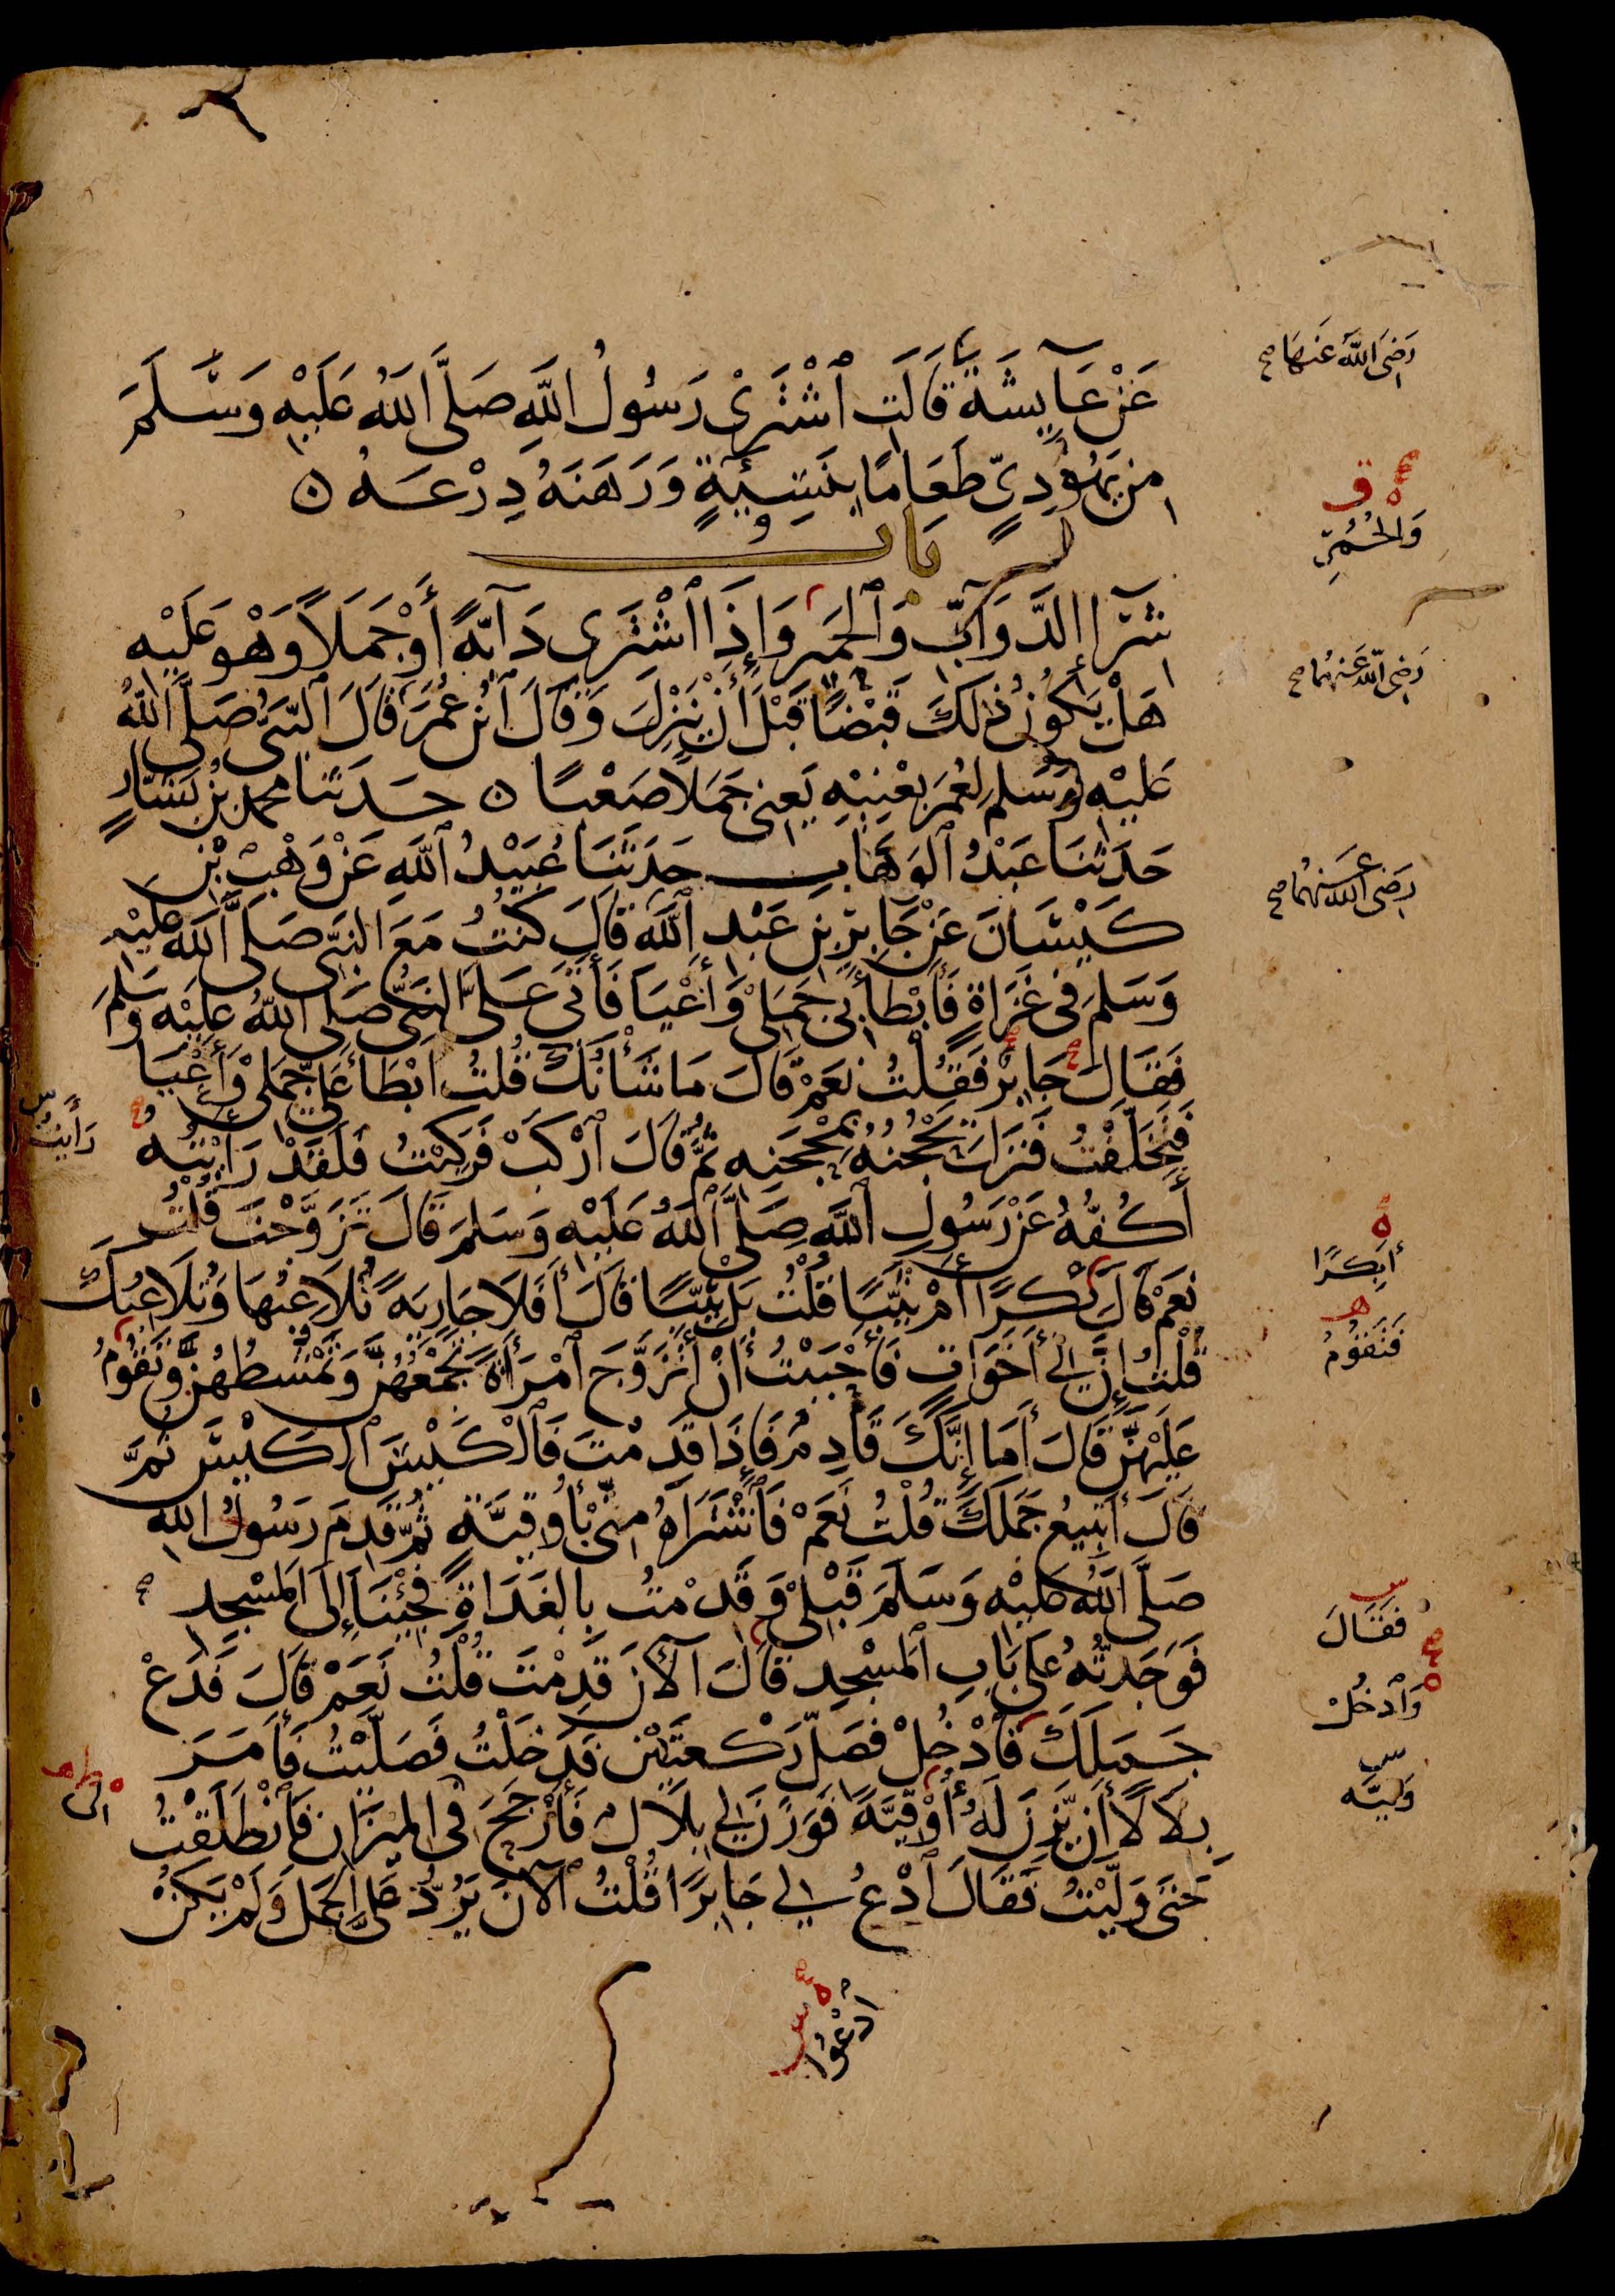 عَنْ عَآيِشَةَ قَالَت ٱشْتَرَىْ رَسُولُ اللَّهِ صَلَّى اللَّهُ عَلَيْهِ وَسَّلَمَ
رَضِىَ اللَّهُ عَنهَا صح
مِن يَهُودِىٍّ طَعَامًا بِنَسِيْئَةٍ وَرَهَنَهُ دِرْعَهُ ن
بابُ
وَالحُمُرِ
شرَآ إالدَّوَآبِّ وَٱلحَمير وَإِذَا ٱشْتَرَى دَآبَّةً أَوْ جَمَلاً وَهْوَ عَلَيْهِ
هَلْ يَكُونُ ذٰلِكَ قَبْضًا قَبْلَ أَنْ يَنْزِلَ وَقَالَ ٱبْنُ عُمَرَ قَالَ ٱلنَّبِىُّ صَلَّى اللَّهُ
رَضِىَ اللَّهُ عَنهُما صح
عَلَيْهِ وَسَلم لِعُمَرَ بِعْنِيْهِ يَعنِى جَمَلاً صَعْبًا ن حَدثنا محمد بْنُ بَشَّارٍ
حَدَثَنَا عَبْدُ ٱلوَهَّابِ حَدَثَنَا عُبَيْدُ ٱللَّهِ عَنْ وَهْبِ بْنِ
كَيْسَانَ عَنْ جَابِرِ بْنِ عَبْدِ ٱللَّهِ قَالَ كُنتُ مَعَ النبِّى صَلَى اللَّه عَليْهِ
رَضىَ اللَّهُ عَنهُما صح
وَسَلمَ فى غَزَاةٍ فَأَبْطَأَ بِى جَمَلِىْ وَأَعْيَا فَأَتَى عَلَىَّ النبىُّ صَلى اللَّهُ عَلَيْهِ وَسَلمَ
فَقَالَ جَابِرْ فَقُلْتُ نَعَمْ قَالَ مَا شَأنُكَ قُلتُ ابْطَأَ عَلَىَّ جَمَلِىْ وَأَعْيَا
فَتَخَلَّفْتُ فَنَزَلَ يَحْجُنُهُ بِمِحْجَنِهِ ثمَّ قَالَ ٱرْكَبْ فَرَكِبْتُ فَلَقَدْ رَأَيْتُهُ
رَأَيتُ
أَكُفُّهُ عَنْ رَسُولِ ٱللَّهِ صَلَّى ٱللَّهُ عَلَيْهِ وَسَلمَ قَالَ تَزَوَّجْتَ قُلتُ
نَعَمْ قَالَ بِكْرًا أَمْ ثَيِّبًا قُلْتُ بَل ثَيِّبًا قَالَ أَفَلَا جَارِيَةً تُلَاعِبُهَا وَتُلَاعِبُكَ
أَبِكرًا
قُلْتُ إِنَّ لِى أَخَوَاتٍ فَأَحْبَبْتُ أَنْ أَتَزَوَّجَ ٱمْرَأَةً تَجْمَعُهُنَّ وَتَمْشطُهُنَّ وَتَقُوْمُ
فَتَقُوْمُ
عَلَيْهِنَّ قَالَ أَمَا إِنَّكَ قَادِمٌ فَإِذَا قَدِمْتَ فَالْكَيْسَ ٱلكَيْسَ ثمَّ
قَالَ أَتَبِيعُ جَمَلَكَ قُلْتُ نَعَمْ فَاشْتَرَاهُ مِنِّى بِأُوقِيَّةٍ ثُمَّ قَدِمَ رَسُولُ اللَّهِ
صَلَّى اللَّهُ عَلَيْهِ وَسَلَمَ قَبْلِىْ وَقَدِمْتُ بِالغَدَاةِ فَجِئْنَا إِلَى المَسْجِدِ
فَوَجَدتُّهُ عَلى بَابِ ٱلمَسْجِدِ قَالَ الآنَ قَدِمْتَ قُلْتُ نَعَمْ قَالَ فَدَعْ
فَقَالَ
جَمَلَكَ فَادْخُلْ فَصَلِّ رَكعَتَيْنِ فَدَخَلْتُ فَصَلَّيْتُ فَأَمَرَ
وَٱدخُلْ
بِلَالًا أَن يَّزِنَ لَهُ أُوْقِيَّةً فَوَزَنَ لِى بِلَالٌ فَأَرْجَحَ فى المِيْزَانِ فَٱنْطَلَقْتُ
وَقِيَّةً
لى
حَتَى وَلَّيْتُ فَقَالَ ٱدْعُ لِى جَابِرًا قُلْتُ الآنَ يَرُدُّ عَلىَّ الجَمَلَ وَلَمْ يَكُنْ
ٱدْعُوا